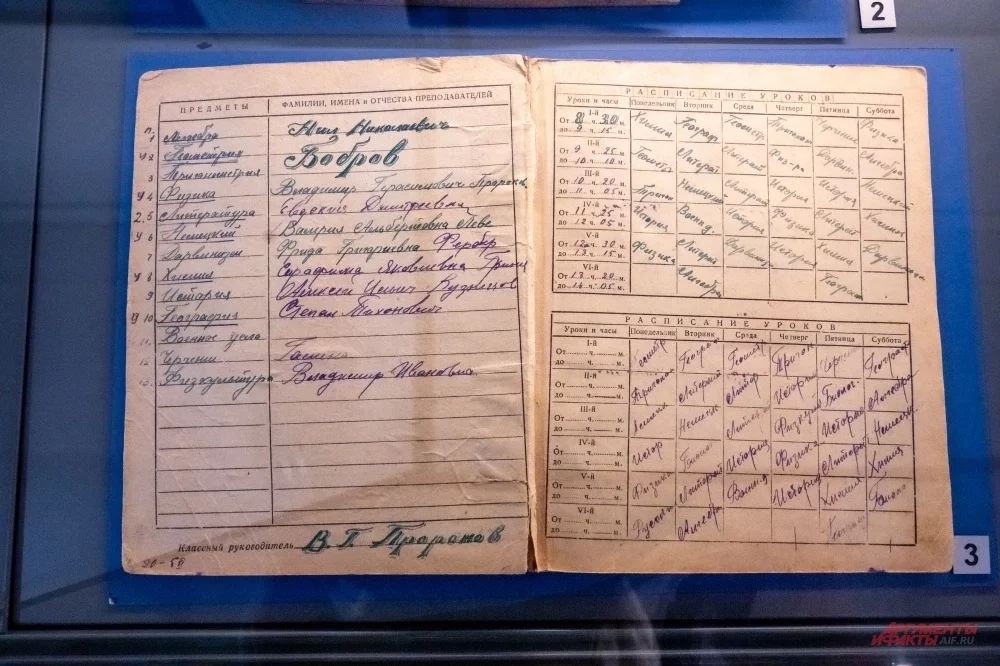 2
ПРЕДМЕТЫ ФАМИЛИИ, ИМЕНА и ОТЧЕСТВА ПРЕПОДАВАТЕЛЕЙ
Алгебра Нил Николаевич
2 Геометрия Бобров
3 Тригонометрия
У 4 Физика Владимир Герасимович
2.5 Литература Евдокия Дмитриевна
У 6 Немецкий Валерия Альбертовна
7 Дарвинизм Фрида Григорьевна
У 8 Химия Серафима Яковлевна
9 История Алексей Кузнецов
У 10 География Степан Тихонович
Военное дело
12 Черчение
13 Физкультура Владимир Иванович
Классный руководитель В. Г. Пророков
РАСПИСАНИЕ УРОКОВ
Уроки и часы Понедельник Вторник Среда Четверг Пятница Суббота
I-й
От 8 ч. 30 м. Химия Географ Геометр Тригоном Черчение Физика
до 9 ч. 15 м.
II-й
От 9 ч. 25 м. Геометр Литерат Литерат Физ-ра Дарвин. Алгебра
до 10 ч. 10 м.
III-й
От 10 ч. 20 м. Тригон Немецкий Литерат История История Немецкий
до 11 ч. 05 м.
IV-й
От 11 ч. 25 м. История Военд. История Физика Литерат
до 12 ч. 05 м.
V-й
От 12 ч. 30 м. Физика Литерат Дарвин История Химия
до 13 ч. 15 м.
VI-й
От 13 ч. 20 м. Алгебра Географ
до 14 ч. 05 м.
РАСПИСАНИЕ УРОКОВ
Уроки и часы Понедельник Вторник Среда Четверг Пятница Суббота
I-й
От ч. м. Геометр Географ Геометр Тригон Черчен Географ
до ч. м.
II-й
От ч. м. Тригоном Литерат Литер История Биолог Алгебра
до ч. м.
III-й
От ч. м. Химия Немецк Литерат Физкульт История Немецк
до ч. м.
IV-й
От ч. м. Истор История Физика Литерат Химия
до ч. м.
V-й
От ч. м. Физика Литерат Воен.д История Химия
до ч. м.
VI-й
От ч. м. Русский Алгебра
до ч. м.
3
АРГУМЕНТЫ
И ФАКТЫ AIF.RU